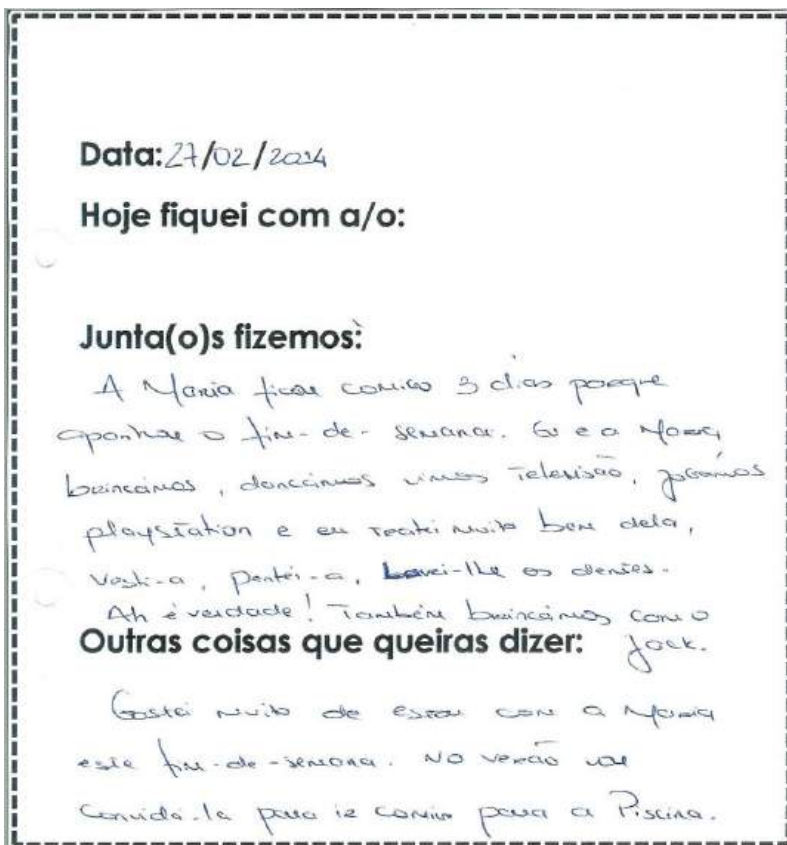 Data: 27/02/2014
Hoje fiquei com a/o:
Junta(o)s fizemos:
A Maria ficou comigo 3 dias porque
apanhou o fim-de-semana. Eu e a Maria
brincámos, dançámos vimos Televisão, jogámos
playstation e eu tratei muito bem dela,
Vesti-a, pentei-a, Lavei-lhe os dentes.
Ah é verdade! Também brincámos com o
Jack.
Outras coisas que queiras dizer:
Gostei muito de estar com a Maria
este fim-de-semana. No verão vou
convida-la para ir comigo para a Piscina.